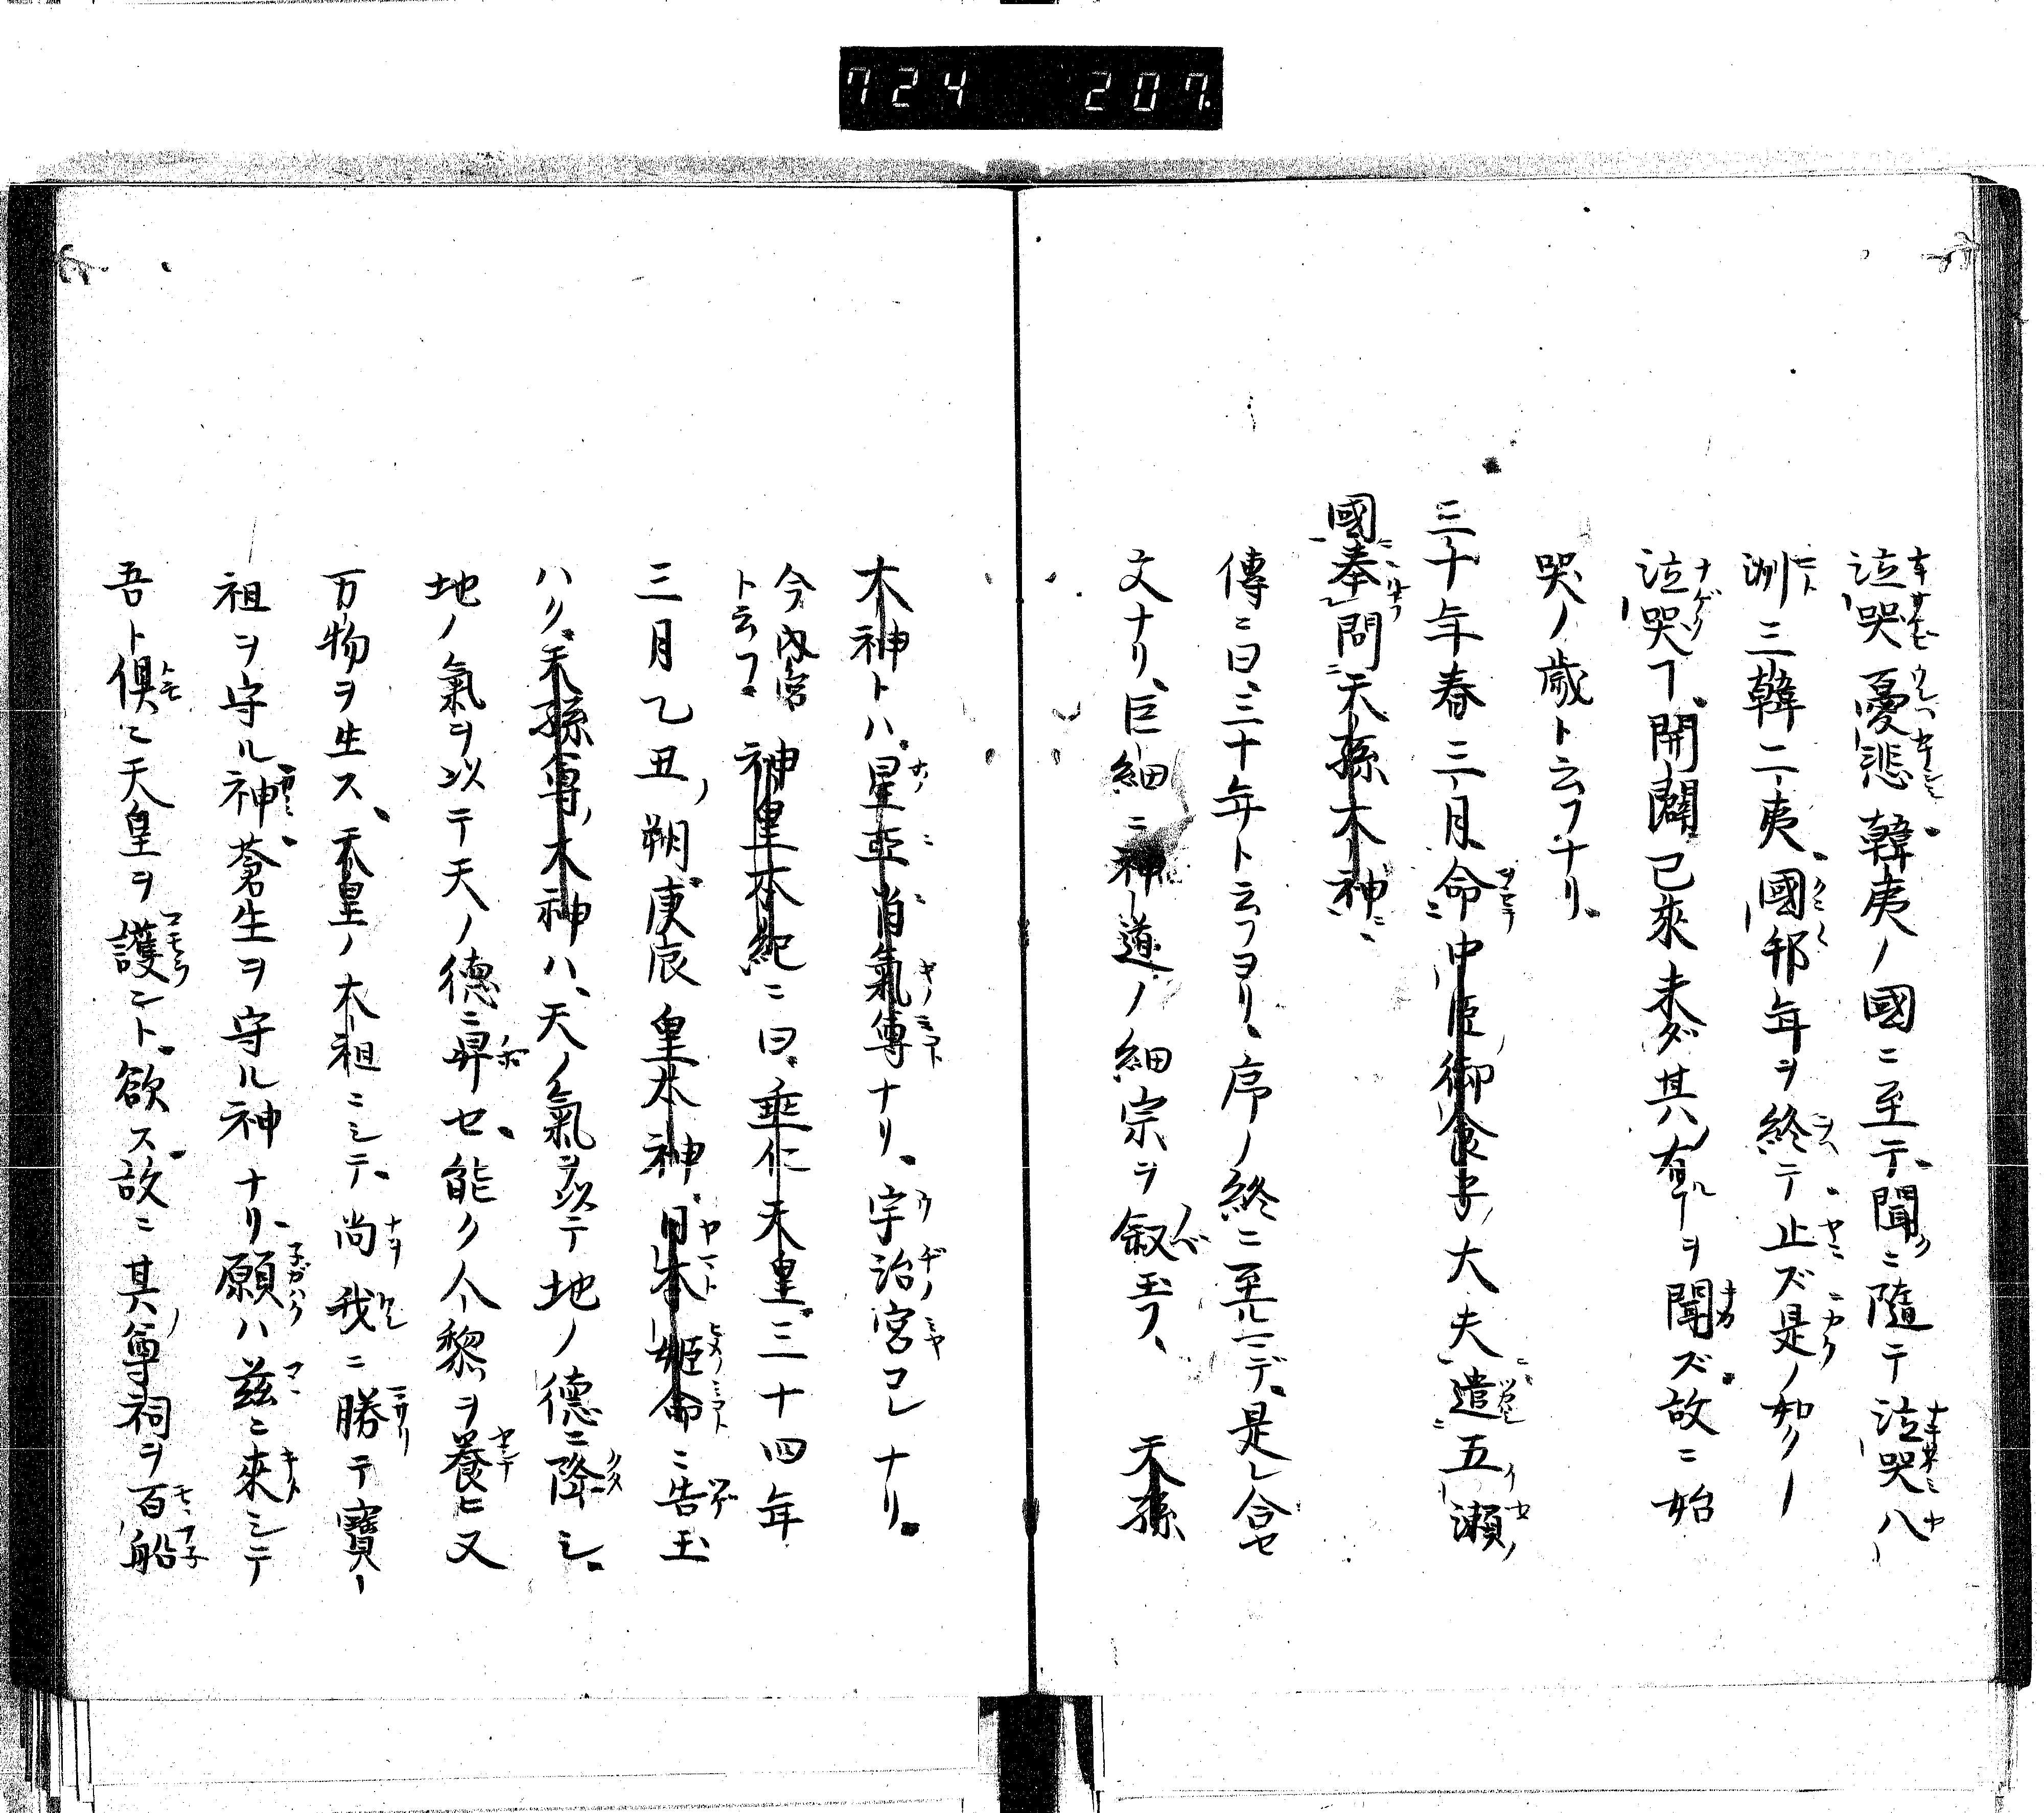 724 207.
泣哭憂悲韓夷ノ國ニ至テ聞ニ隨テ泣哭八
洲三韓二夷國邦年ヲ終テ止ズ是ノ如ク
泣哭フ開闢已來未ダ其有ヲ聞ズ故ニ始
哭ノ歳ト云フナリ
三十年春三月命中臣御食子大夫遣五瀬
國奉問天孫木神
傳ニ曰三十年ト云フヨリ序ノ終ニ至ルマデ是レ合セ
文ナリ巨細ニ神道ノ細宗ヲ叙玉フ 天孫
木神トハ星亞肖氣尊ナリ宇治宮コレナリ
今内宮ト云フ 神皇本紀ニ曰垂仁天皇三十四年
三月乙丑朔庚辰皇太神日本姫命ニ告玉
ハク天孫尊木神ハ天ノ氣ヲ以テ地ノ德ニ降シ
地ノ氣ヲ以テ天ノ德ニ昇セ能ク人黎ヲ養ヒ又
万物ヲ生ス天皇ノ太祖ニシテ尚我ニ勝テ寶
祖ヲ守ル神蒼生ヲ守ル神ナリ願ハ茲ニ來シテ
吾ト倶ニ天皇ヲ護ント欲ス故ニ其尊祠ヲ百船